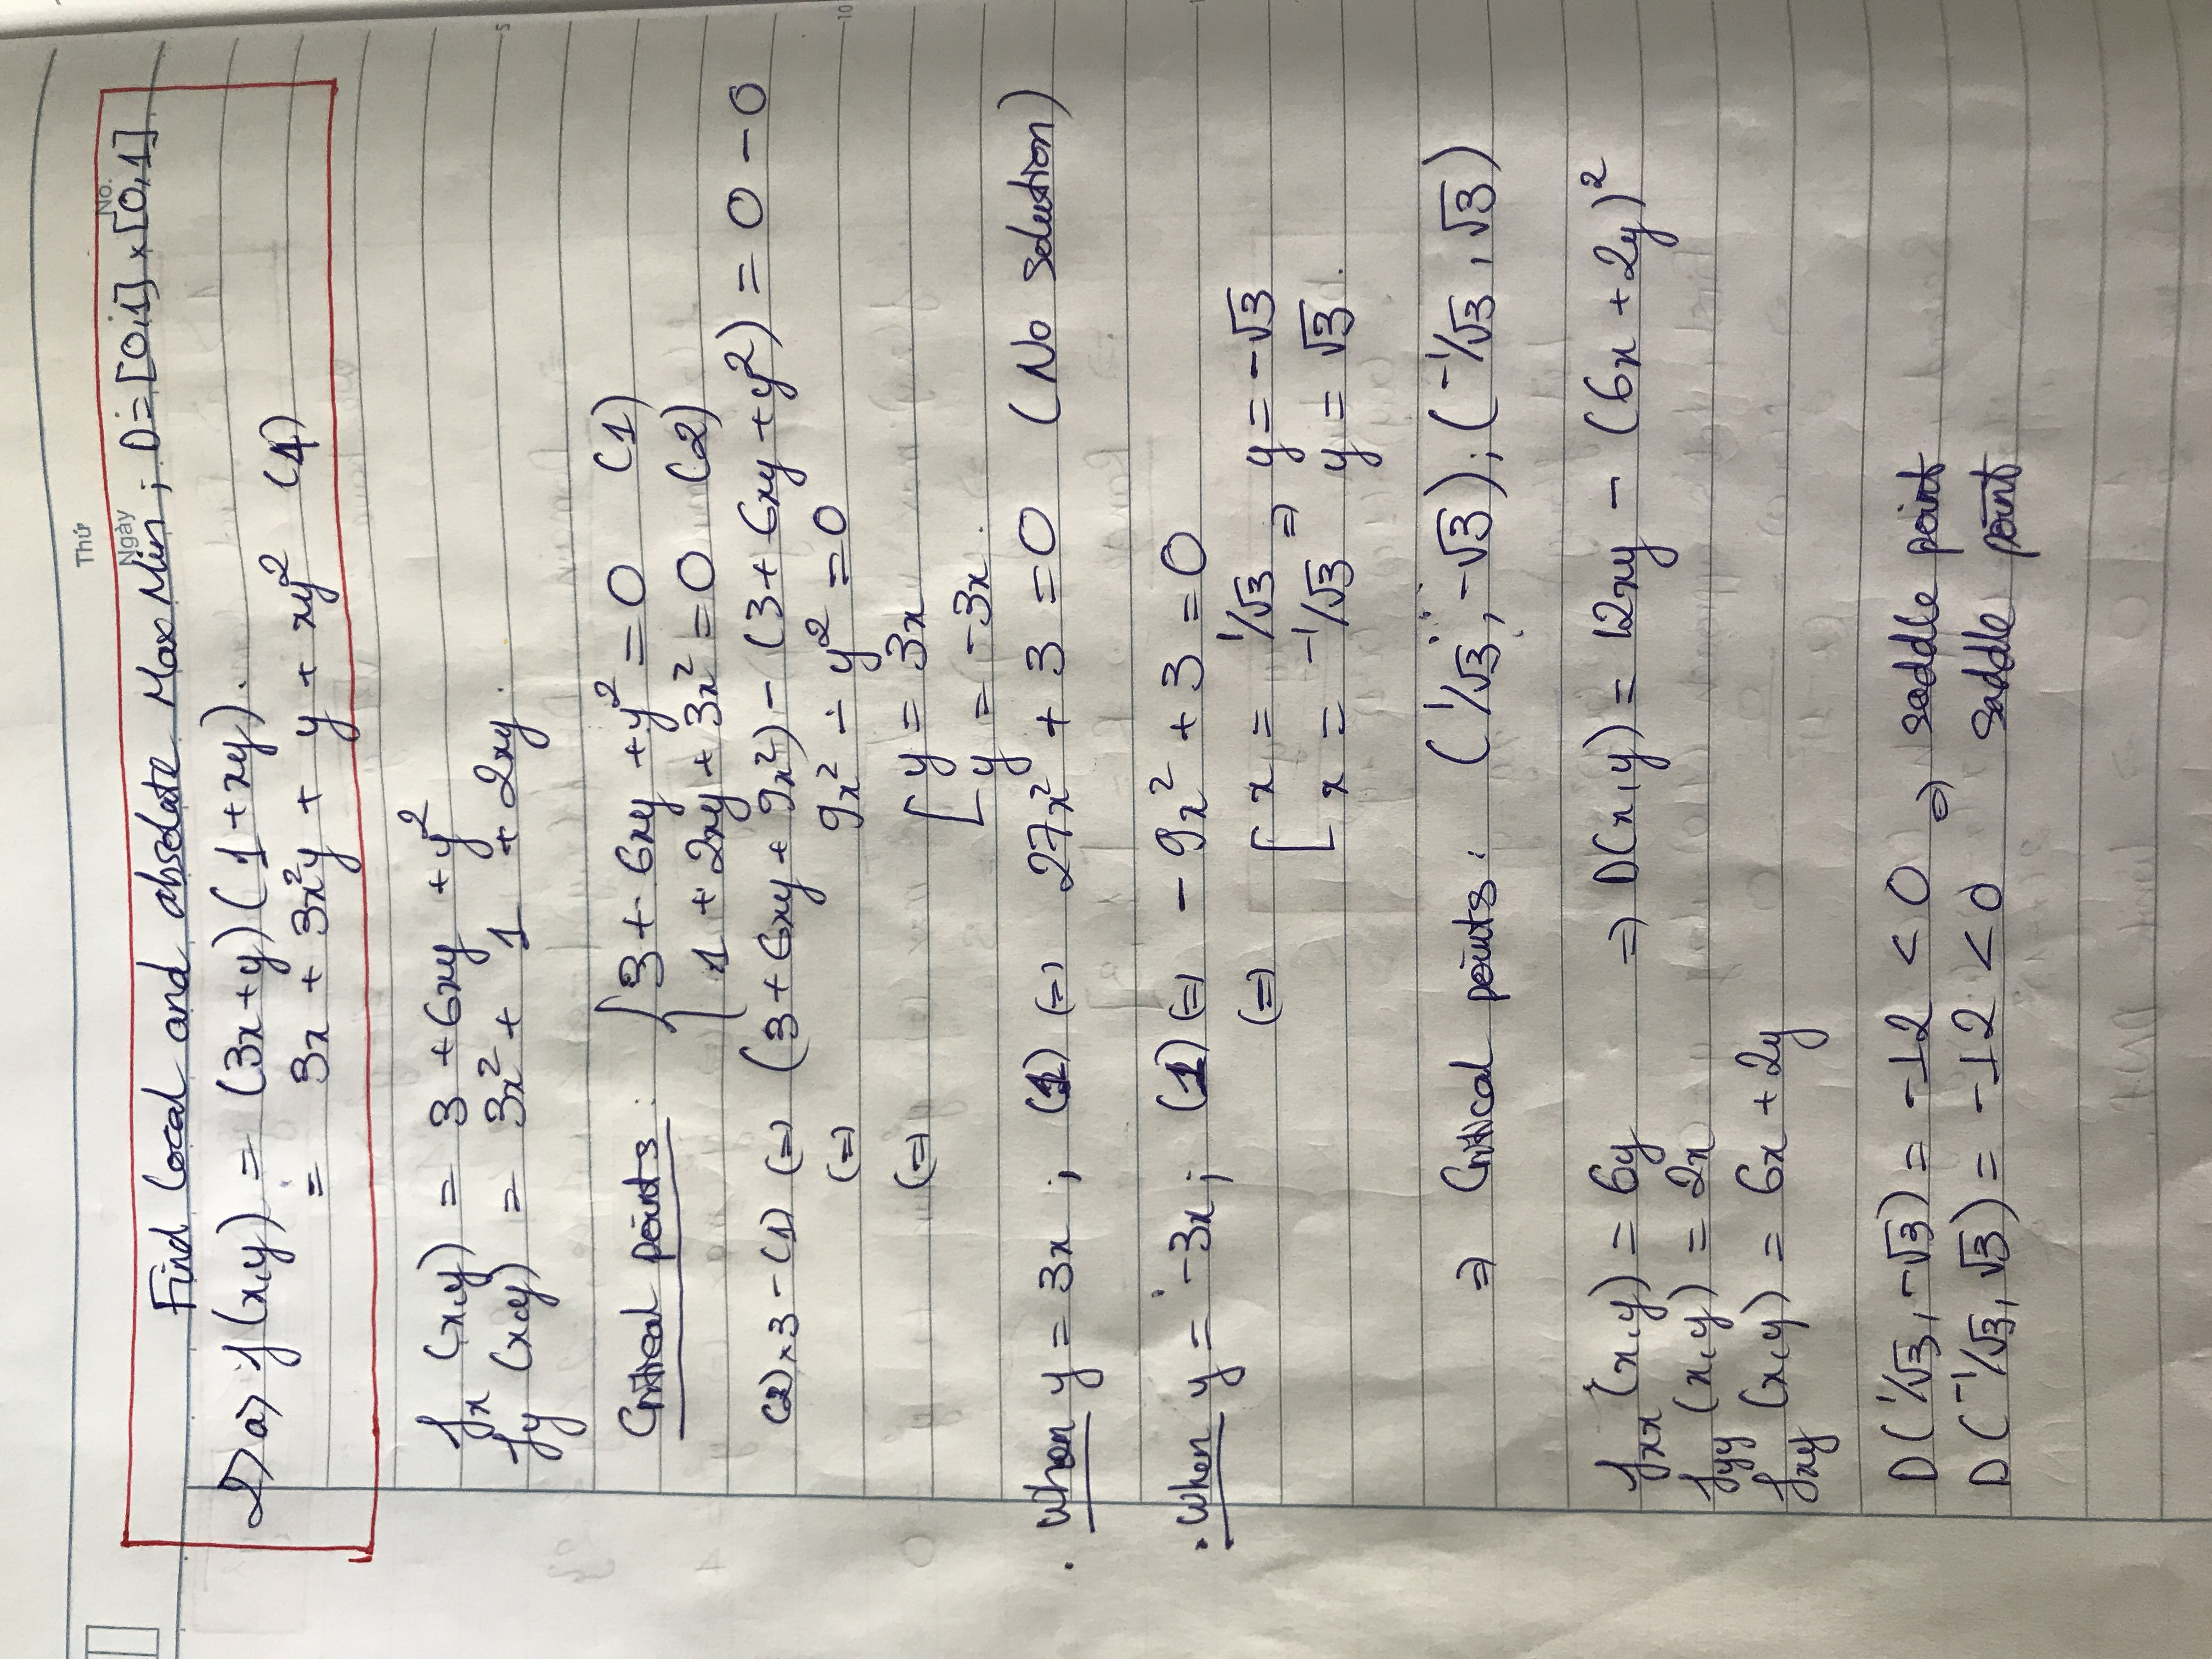 Thứ
No.
Ngày
Find local and absolute Max Min ; D = [0,1] × [0,1]
2> a> f(x,y) = (3x+y)(1+xy).
= 3x + 3x²y + y + xy² (1)
fₓ (x,y) = 3 + 6xy + y²
f_y (x,y) = 3x² + 1 + 2xy.
Critical points : { 3 + 6xy + y² = 0 (1)
1 + 2xy + 3x² = 0 (2)
(2)×3 - (1) (=) (3 + 6xy + 9x²) - (3 + 6xy + y²) = 0 - 0
(=) 9x² - y² = 0
(=) [ y = 3x
y = -3x.
. When y = 3x ; (1) (=) 27x² + 3 = 0 (No solution)
. When y = -3x ; (1) (=) - 9x² + 3 = 0
(=) [ x = 1/√3 => y = -√3
x = -1/√3 y = √3.
=> Critical points : (1/√3, -√3); (-1/√3, √3)
fₓₓ (x,y) = 6y => D(x,y) = 12xy - (6x + 2y)²
f_yy (x,y) = 2x
f_xy (x,y) = 6x + 2y
D(1/√3, -√3) = -12 < 0 => saddle point
D(-1/√3, √3) = -12 < 0 saddle point
5
10